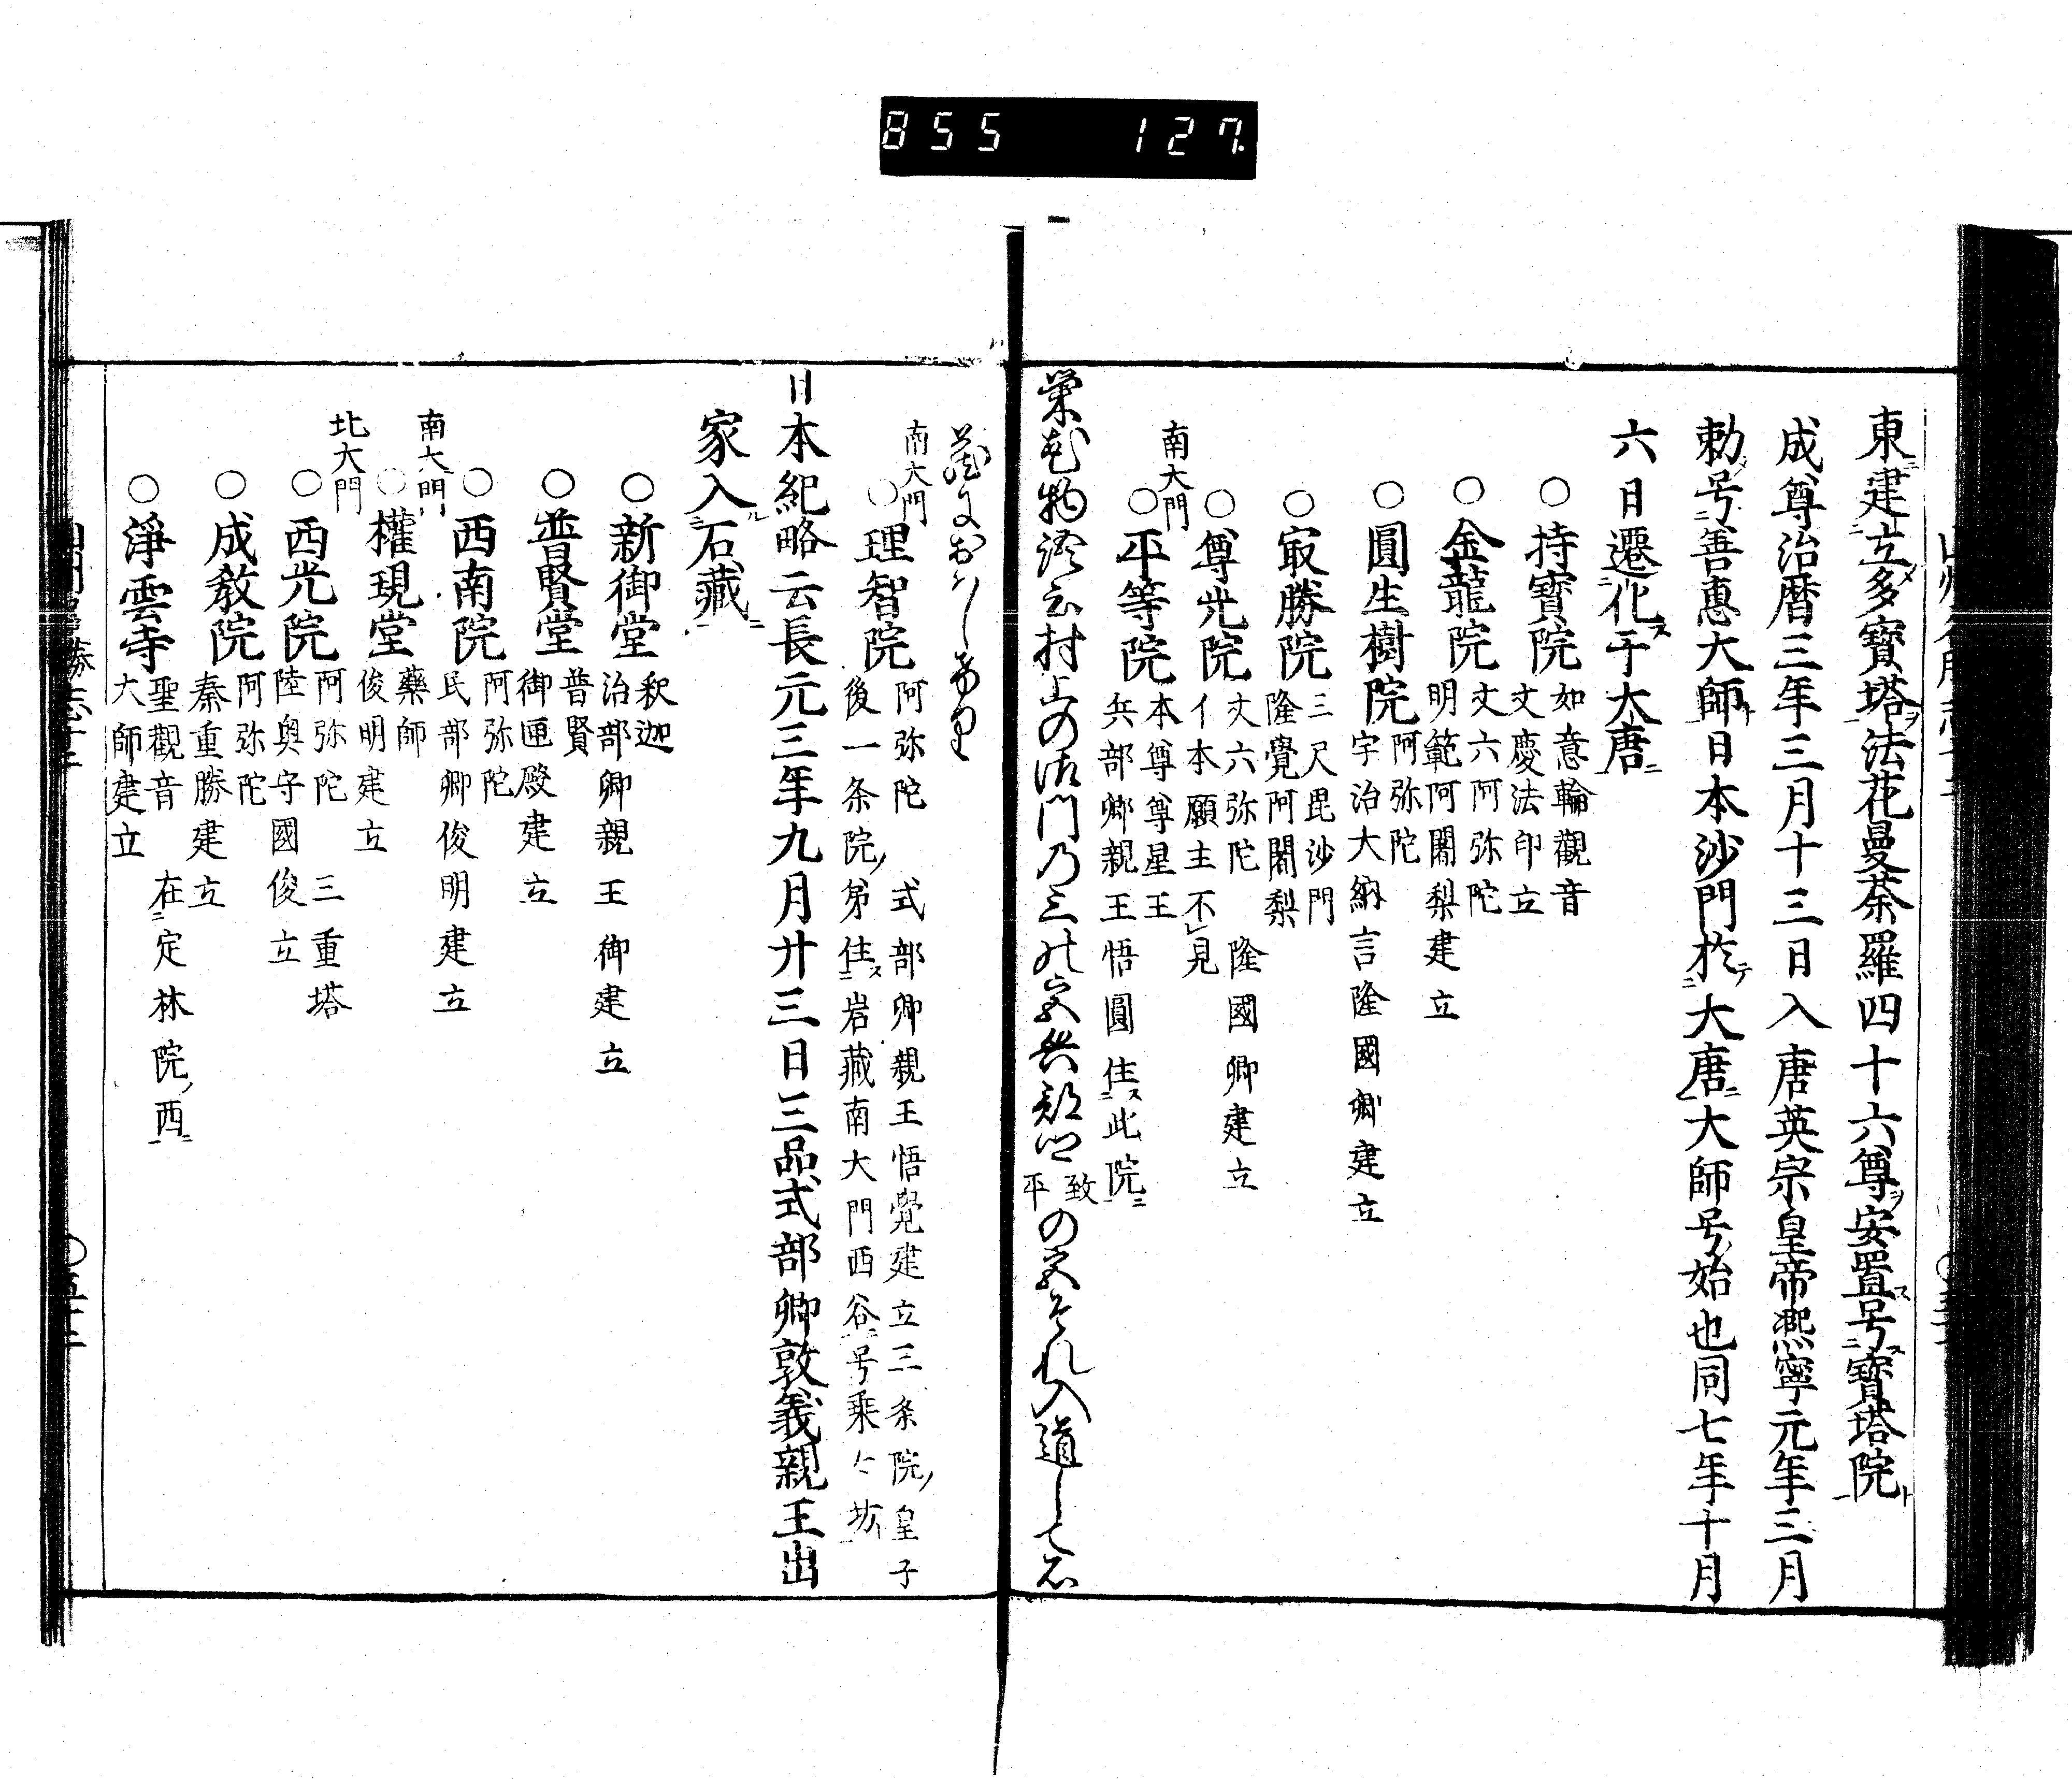 855 127
東建立多寶塔法花曼荼羅四十六尊安置号寶塔院
成尊治暦三年三月十三日入唐英宗皇帝熈寧元年三月
勅号善惠大師日本沙門於大唐大師号始也同七年十月
六日遷化于大唐
○持寶院 如意輪觀音
文慶法印立
○金龍院 丈六阿弥陀
明範阿闍梨建立
○圓生樹院 阿弥陀
宇治大納言隆國卿建立
○㝡勝院 三尺毘沙門
隆覺阿闍梨
○尊光院 丈六弥陀 隆國卿建立
イ本願主不見
南大門
○平等院 本尊尊星王
兵部卿親王悟圓住此院
榮花物語云村上の御門乃三の宮兵部卿致平の宮それ入道して石
藏におはしける
南大門
○理智院 阿弥陀 式部卿親王悟覺建立三条院皇子
後一条院弟住岩藏南大門西谷号乗々坊
日本紀略云長元三年九月廿三日三品式部卿敦義親王出
家入石藏
○新御堂 釈迦
治部卿親王御建立
○普賢堂 普賢
御匣殿建立
○西南院 阿弥陀
民部卿俊明建立
南大門
○權現堂 藥師
俊明建立
北大門
○西光院 阿弥陀 三重塔
陸奥守國俊立
○成教院 阿弥陀
秦重勝建立
○淨雲寺 聖觀音 在定林院西
大師建立